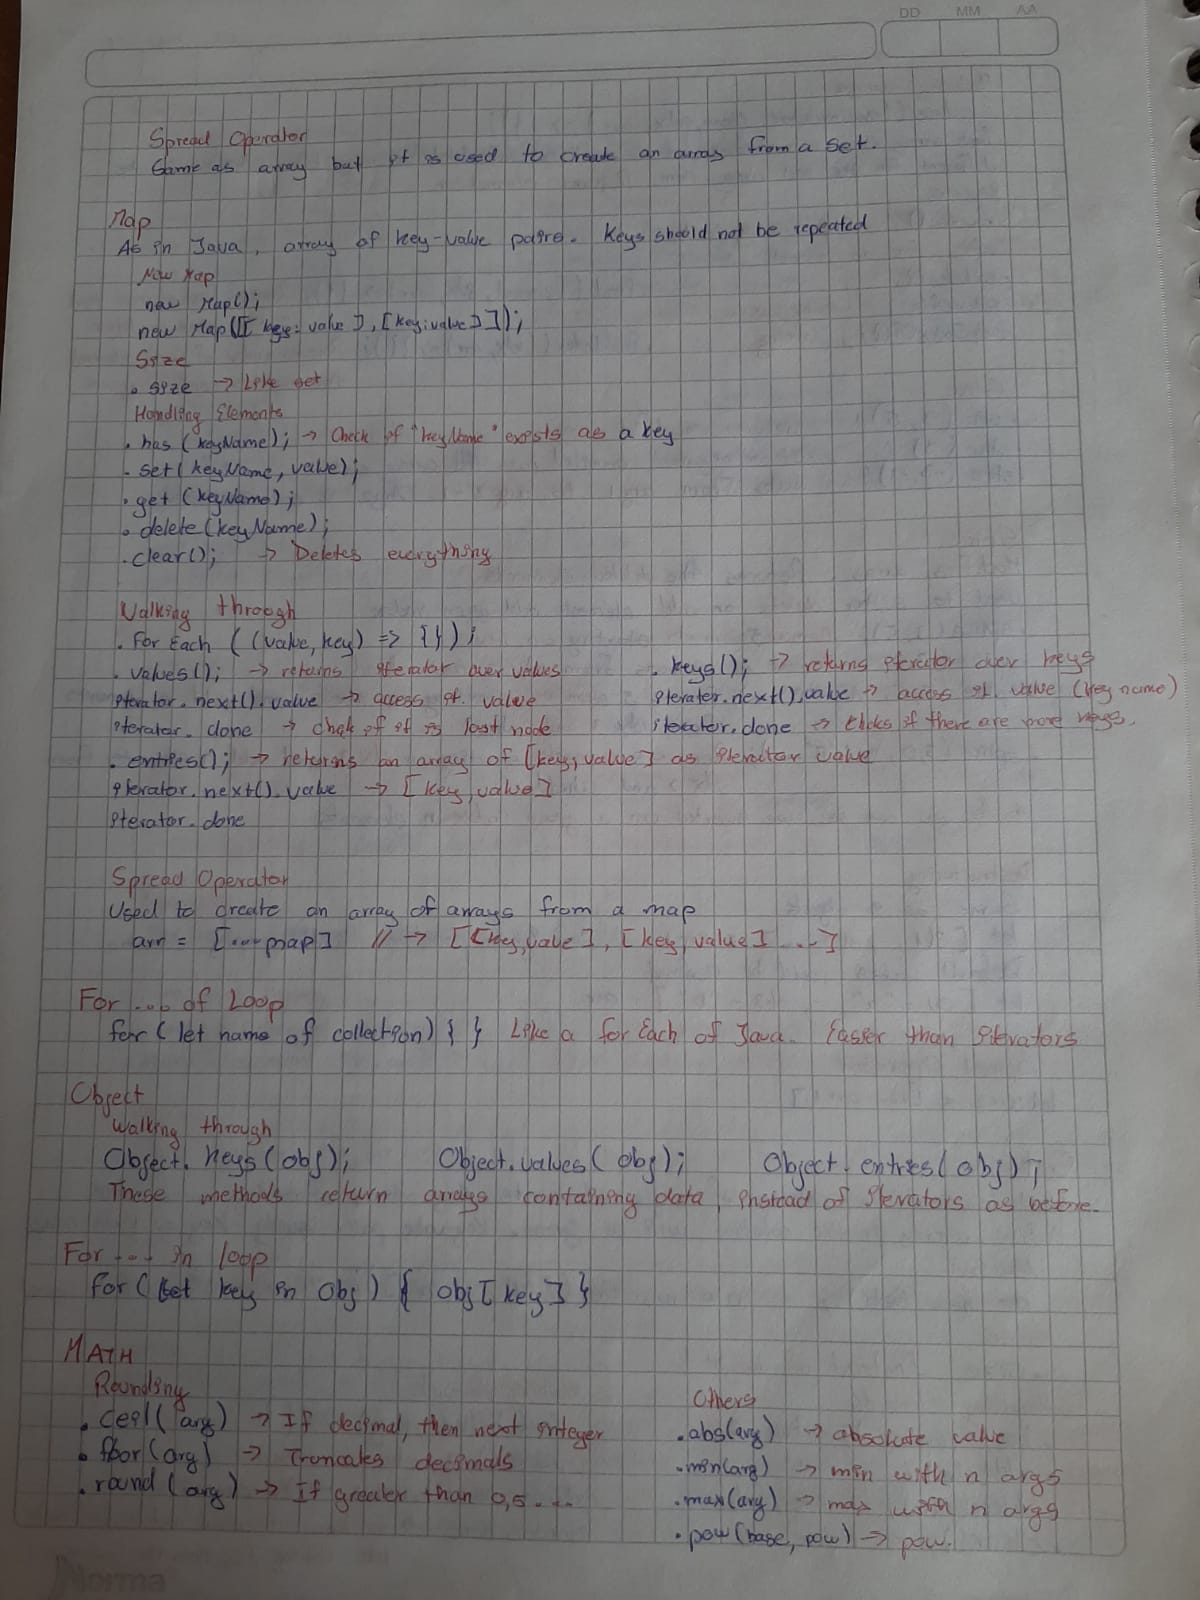 DD MM AA
Spread Operator
Same as array but it is used to create an array from a set.
Map
As in Java, array of key-value pairs. Keys should not be repeated
New Map
new Map();
new Map([[key: value], [key:value]]);
Size
.size → Like set
Handling Elements
.has (keyName); → Check if "keyName" exists as a key
.set (keyName, value);
.get (keyName);
.delete (keyName);
.clear(); → Deletes everything
Walking through
.for Each ((value, key) => {});
.values(); → returns iterator over values .keys(); → returns iterator over keys
iterator.next().value → access it. value iterator.next().value → access it. value (key name)
iterator.done → chek if it is last node iterator.done → if there are more keys.
.entries(); → returns an array of [key, value] as iterator value
iterator.next().value → [key, value]
iterator.done
Spread Operator
Used to create an array of arrays from a map
arr = [...map] // → [[key, value], [key, value] ...]
For ... of Loop
for (let name of collection) { } Like a for Each of Java. Easier than iterators
Object
Walking through
Object.keys(obj); Object.values(obj); Object.entries(obj);
These methods return arrays containing data, instead of iterators as before.
For ... in loop
for (let key in obj) { obj[key] }
MATH
Rounding Others
.ceil(arg) → If decimal, then next integer .abs(arg) → absolute value
.floor(arg) → Truncates decimals .min(arg) → min with n args
.round(arg) → If greater than 0,5... .max(arg) → max with n args
.pow(base, pow) → pow.
Norma